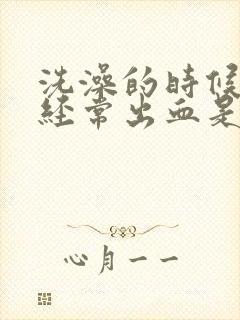 洗澡的时候
经常出血是
心月一一